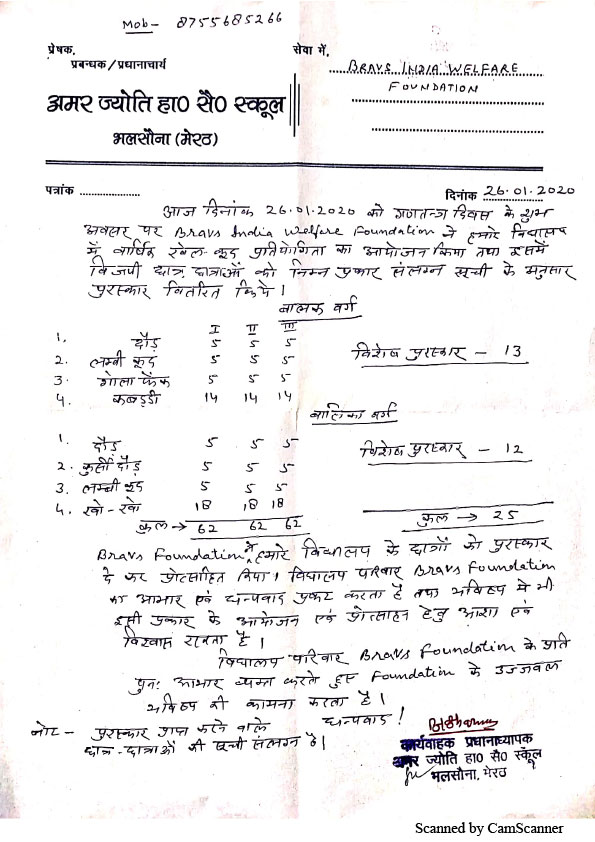 Mob- 8755685266
प्रेषक,
सेवा में,
प्रबन्धक/प्रधानाचार्य
BRAVS INDIA WELFARE
FOUNDATION
अमर ज्योति हा० सै० स्कूल
भलसौना (मेरठ)
पत्रांक ..................
दिनांक 26.01.2020
आज दिनांक 26.01.2020 को गणतन्त्र दिवस के शुभ
अवसर पर Bravs India Welfare Foundation ने हमारे विद्यालय
में वार्षिक खेल-कूद प्रतियोगिता का आयोजन किया तथा इसमें
विजयी छात्र, छात्राओं को निम्न प्रकार संलग्न सूची के अनुसार
पुरस्कार वितरित किये।
बालक वर्ग
I II III
1. दौड़ 5 5 5
2. लम्बी कूद 5 5 5
3. गोला फेंक 5 5 5
4. कबड्डी 14 14 14
विशेष पुरस्कार - 13
बालिका वर्ग
1. दौड़ 5 5 5
2. कुर्सी दौड़ 5 5 5
3. लम्बी कूद 5 5 5
4. खो-खो 18 18 18
कुल → 62 62 62
विशेष पुरस्कार - 12
कुल → 25
Bravs Foundation ने हमारे विद्यालय के छात्रों को पुरस्कार
दे कर प्रोत्साहित किया। विद्यालय परिवार Bravs Foundation
का आभार एवं धन्यवाद प्रकट करता है तथा भविष्य में भी
इसी प्रकार के आयोजन एवं प्रोत्साहन हेतु आशा एवं
विश्वास रखता है।
विद्यालय परिवार Bravs Foundation के प्रति
पुनः आभार व्यक्त करते हुए Foundation के उज्जवल
भविष्य की कामना करता है।
धन्यवाद!
नोट - पुरस्कार प्राप्त करने वाले
छात्र-छात्राओं की सूची संलग्न है।
कार्यवाहक प्रधानाध्यापक
अमर ज्योति हा० सै० स्कूल
भलसौना, मेरठ
Scanned by CamScanner